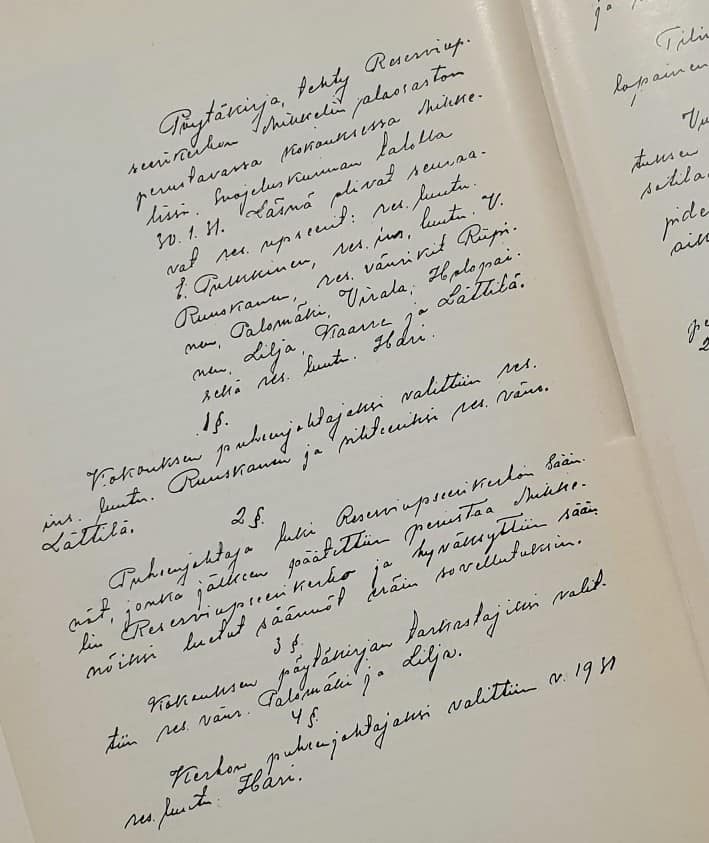 Pöytäkirja, tehty Reserviup-
seerikerhon Mikkelin alaosaston
perustavassa kokouksessa Mikke-
lissä Suojeluskunnan talolla
30.1.31. Läsnä olivat seuraa-
vat res. upseerit: res. luutn.
E. Pulkkinen, res. ins. luutn. V.
Ruuskanen, res. vänrikit Riipi-
nen, Palomäki, Virala, Holopai-
nen, Lilja, Kaarre ja Lättilä.
sekä res. luutn. Hari.
1 §.
Kokouksen puheenjohtajaksi valittiin res.
ins. luutn. Ruuskanen ja sihteeriksi res. vänr.
Lättilä.
2 §.
Puheenjohtaja luki Reserviupseerikerhon sään-
nöt, jonka jälkeen päätettiin perustaa Mikke-
lin Reserviupseerikerho ja hyväksyttiin sään
nöiksi luetut säännöt eräin sovellutuksin.
3 §.
Kokouksen pöytäkirjan tarkastajiksi valit-
tiin res. vänr. Palomäki ja Lilja.
4 §.
Kerhon puheenjohtajaksi valittiin v. 1931
res. luutn. Hari.
ja
Tili
lopainen
tuksen
pide